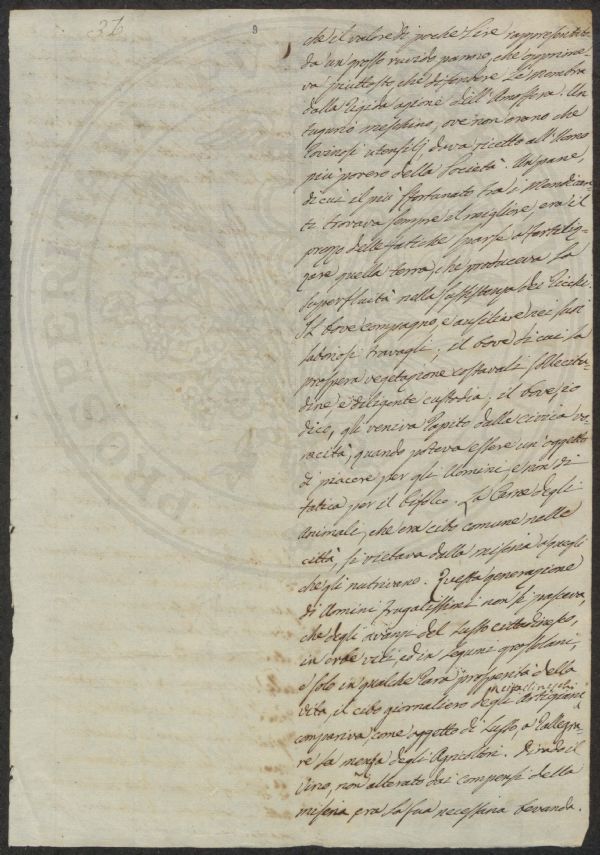 36
9
che il valore di poche Lire rappresentate
da un grosso ruvido panno, che opprime=
va piuttosto che difendere le membra
dalla rigida azione dell'Atmosfera. Un
tugurio meschino, ove non erano che
rovinosi utensilj dava ricetto all'Uomo
più povero della Società. Un pane,
di cui il più sfortunato tra i Mendican=
ti trovava sempre il migliore, era il
prezzo delle fatiche sparse a fertiliz=
zare quella terra che produceva la
superfluità nella sussistenza dei Ricchi.
Il bove compagno, e ausiliare nei suoi
laboriosi travagli; il bove di cui la
prospera vegetazione costavali sollecitu=
dine, e diligente custodia; il bove, io
dico, gli veniva rapito dalla civica vo=
racità, quando poteva essere un oggetto
di piacere per gli Uomini, e non di
fatica per il bifolco. La Carne degli
animali, che era cibo comune nelle
città, si vietava dalla miseria a quegli
che gli nutrivano. Questa generazione
di Uomini frugalissimi non si pasceva,
che degli avanzi del lusso cittadinesco,
in erbe vili, ed in legumi grossolani,
e solo in qualche rara prosperità della
vita, il cibo giornaliero degli Artigiani
compariva, come oggetto di lusso, a rallegra=
re la mensa degli Agricoltori. Di rado il
vino, non alterato dai compensi della
miseria, era la sua necessaria bevanda.